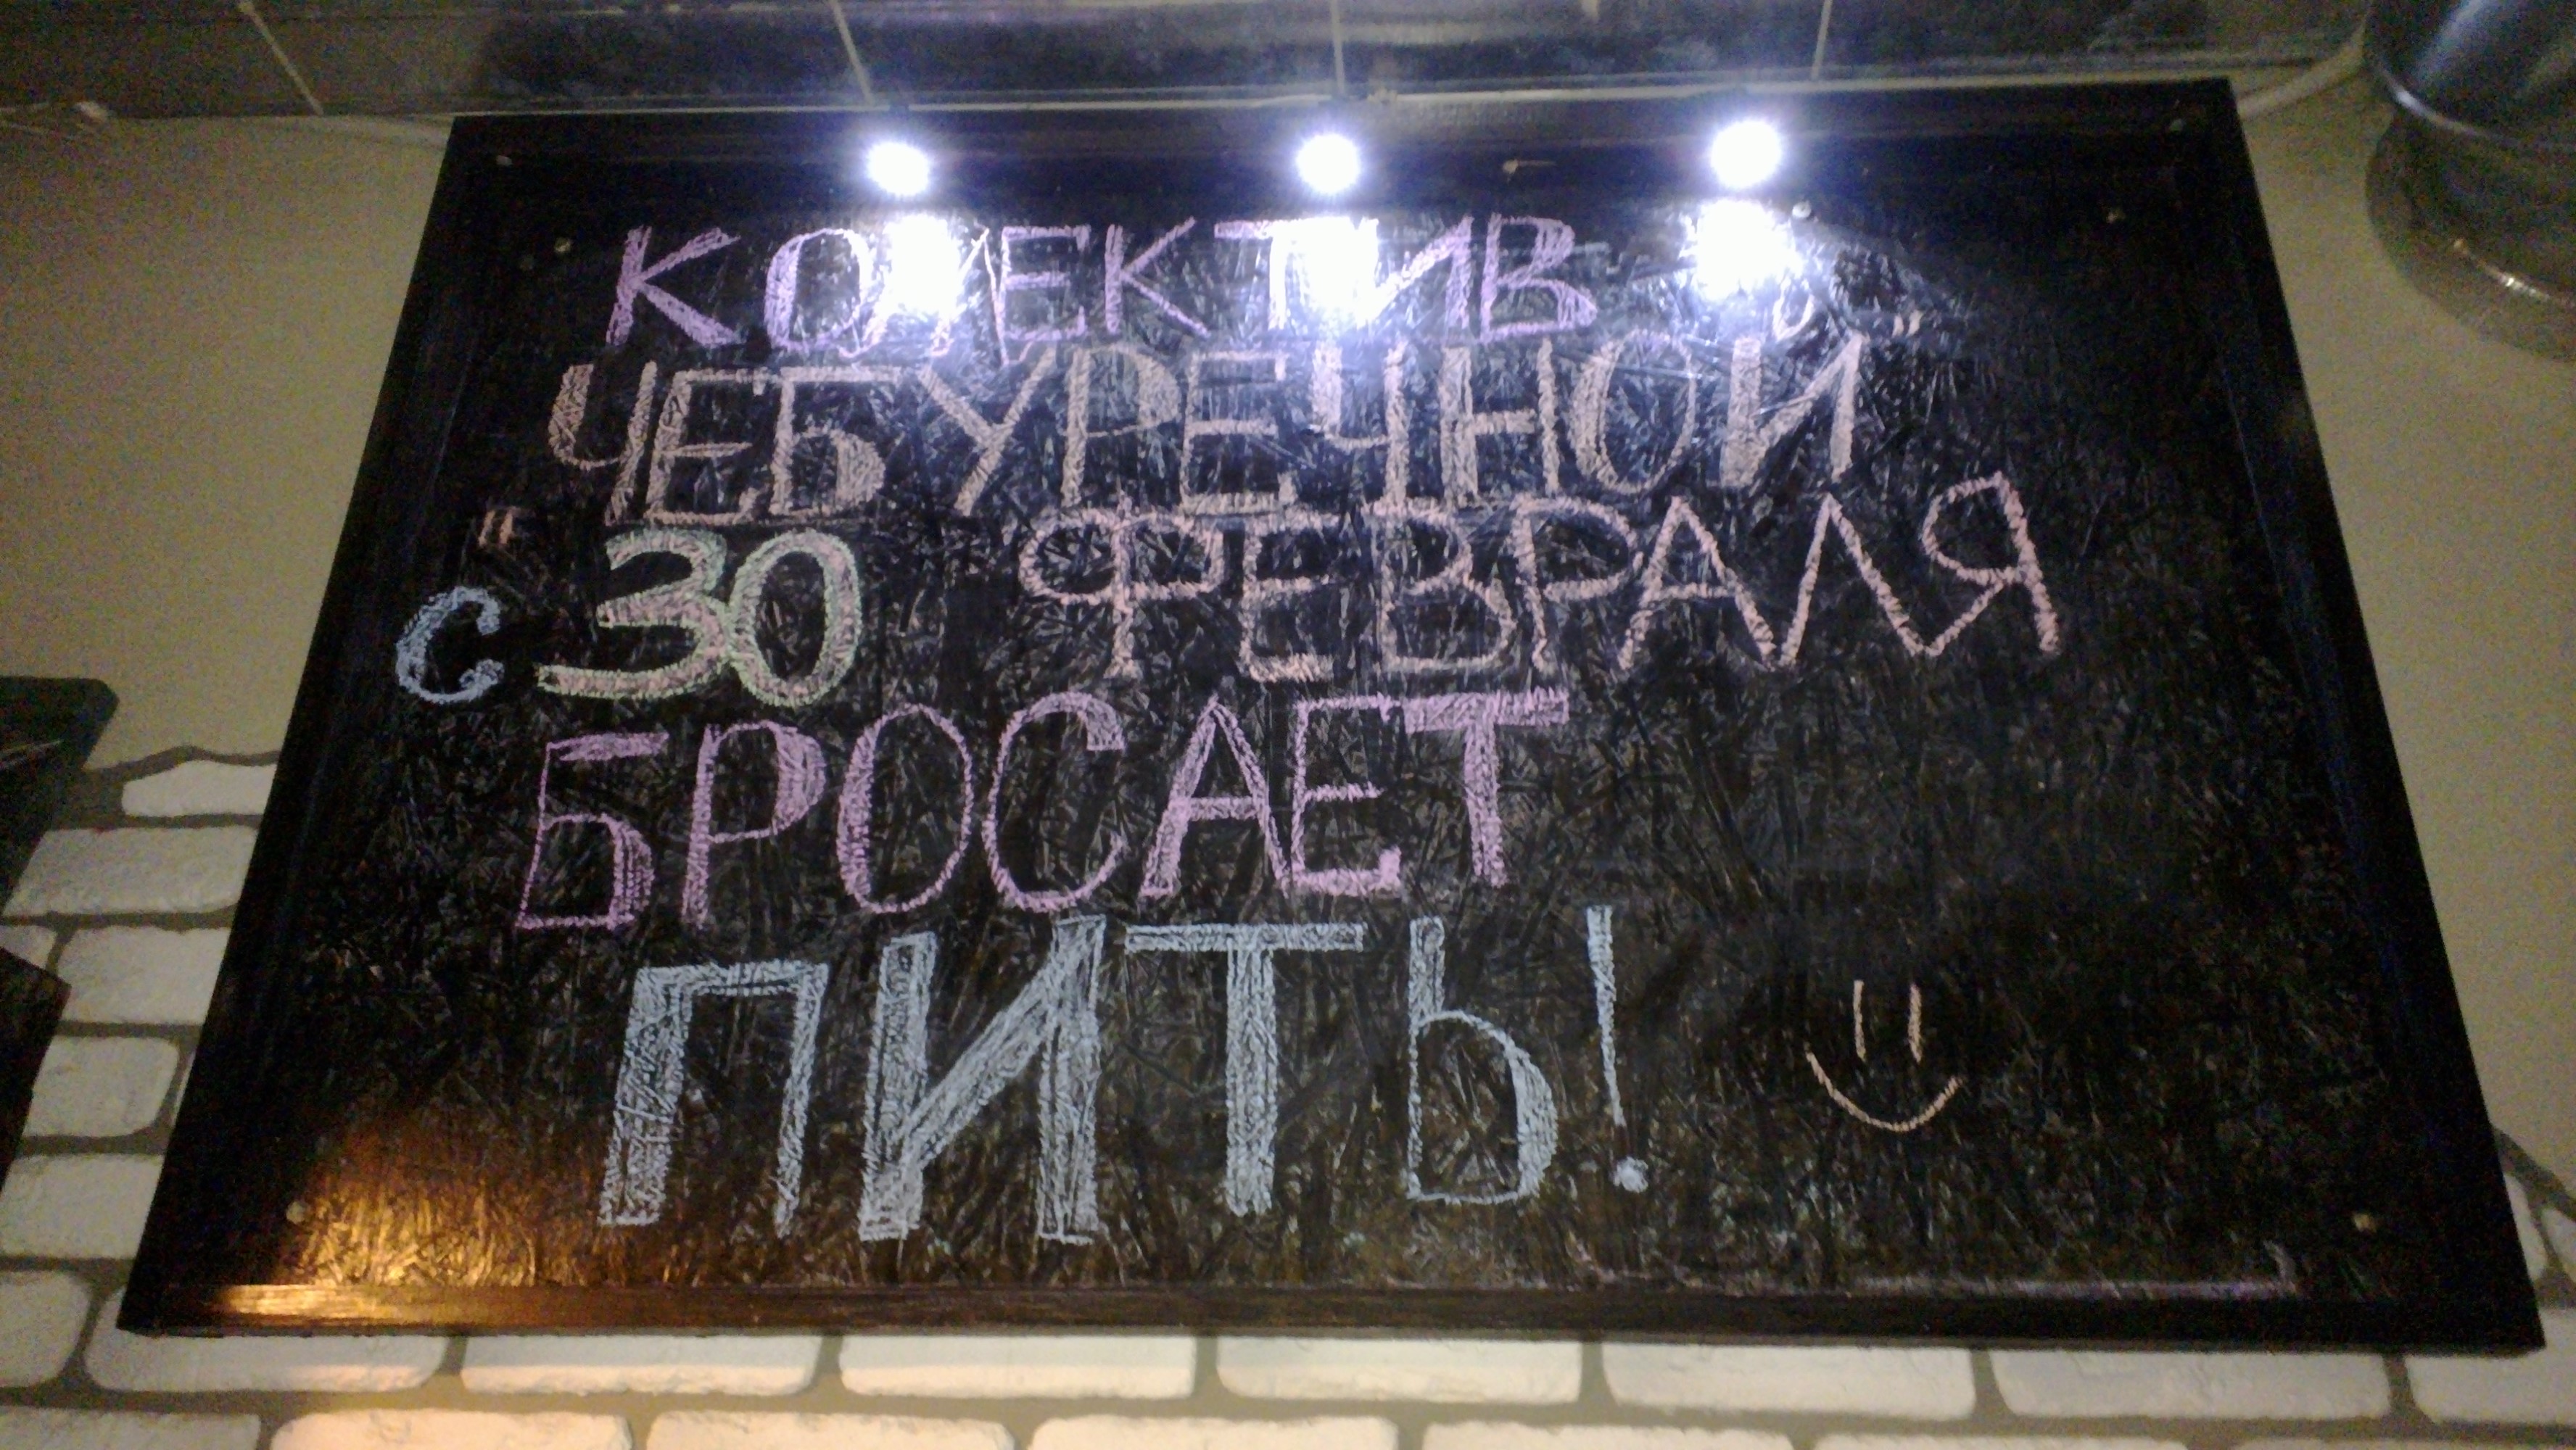 КОЛЕКТИВ
"ЧЕБУРЕЧНОЙ"
с 30 ФЕВРАЛЯ
БРОСАЕТ
ПИТЬ!